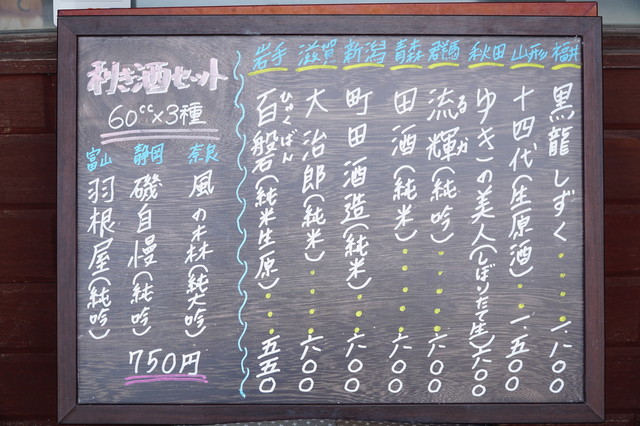 福井
黒龍しずく・・・・一、一〇〇
山形
十四代(生原酒)・・一、五〇〇
秋田
ゆきの美人(しぼりたて生)六〇〇
群馬
流輝(純吟)・・・・六〇〇
るか
青森
田酒(純米)・・・・六〇〇
新潟
町田酒造(純米)・・・六〇〇
滋賀
大治郎(純米)・・・・六〇〇
岩手
百磐(純米生原)・・・五五〇
ひゃくばん
利き酒セット
60cc×3種
奈良
風の森(純大吟)
静岡
磯自慢(純吟)
富山
羽根屋(純吟)
750円